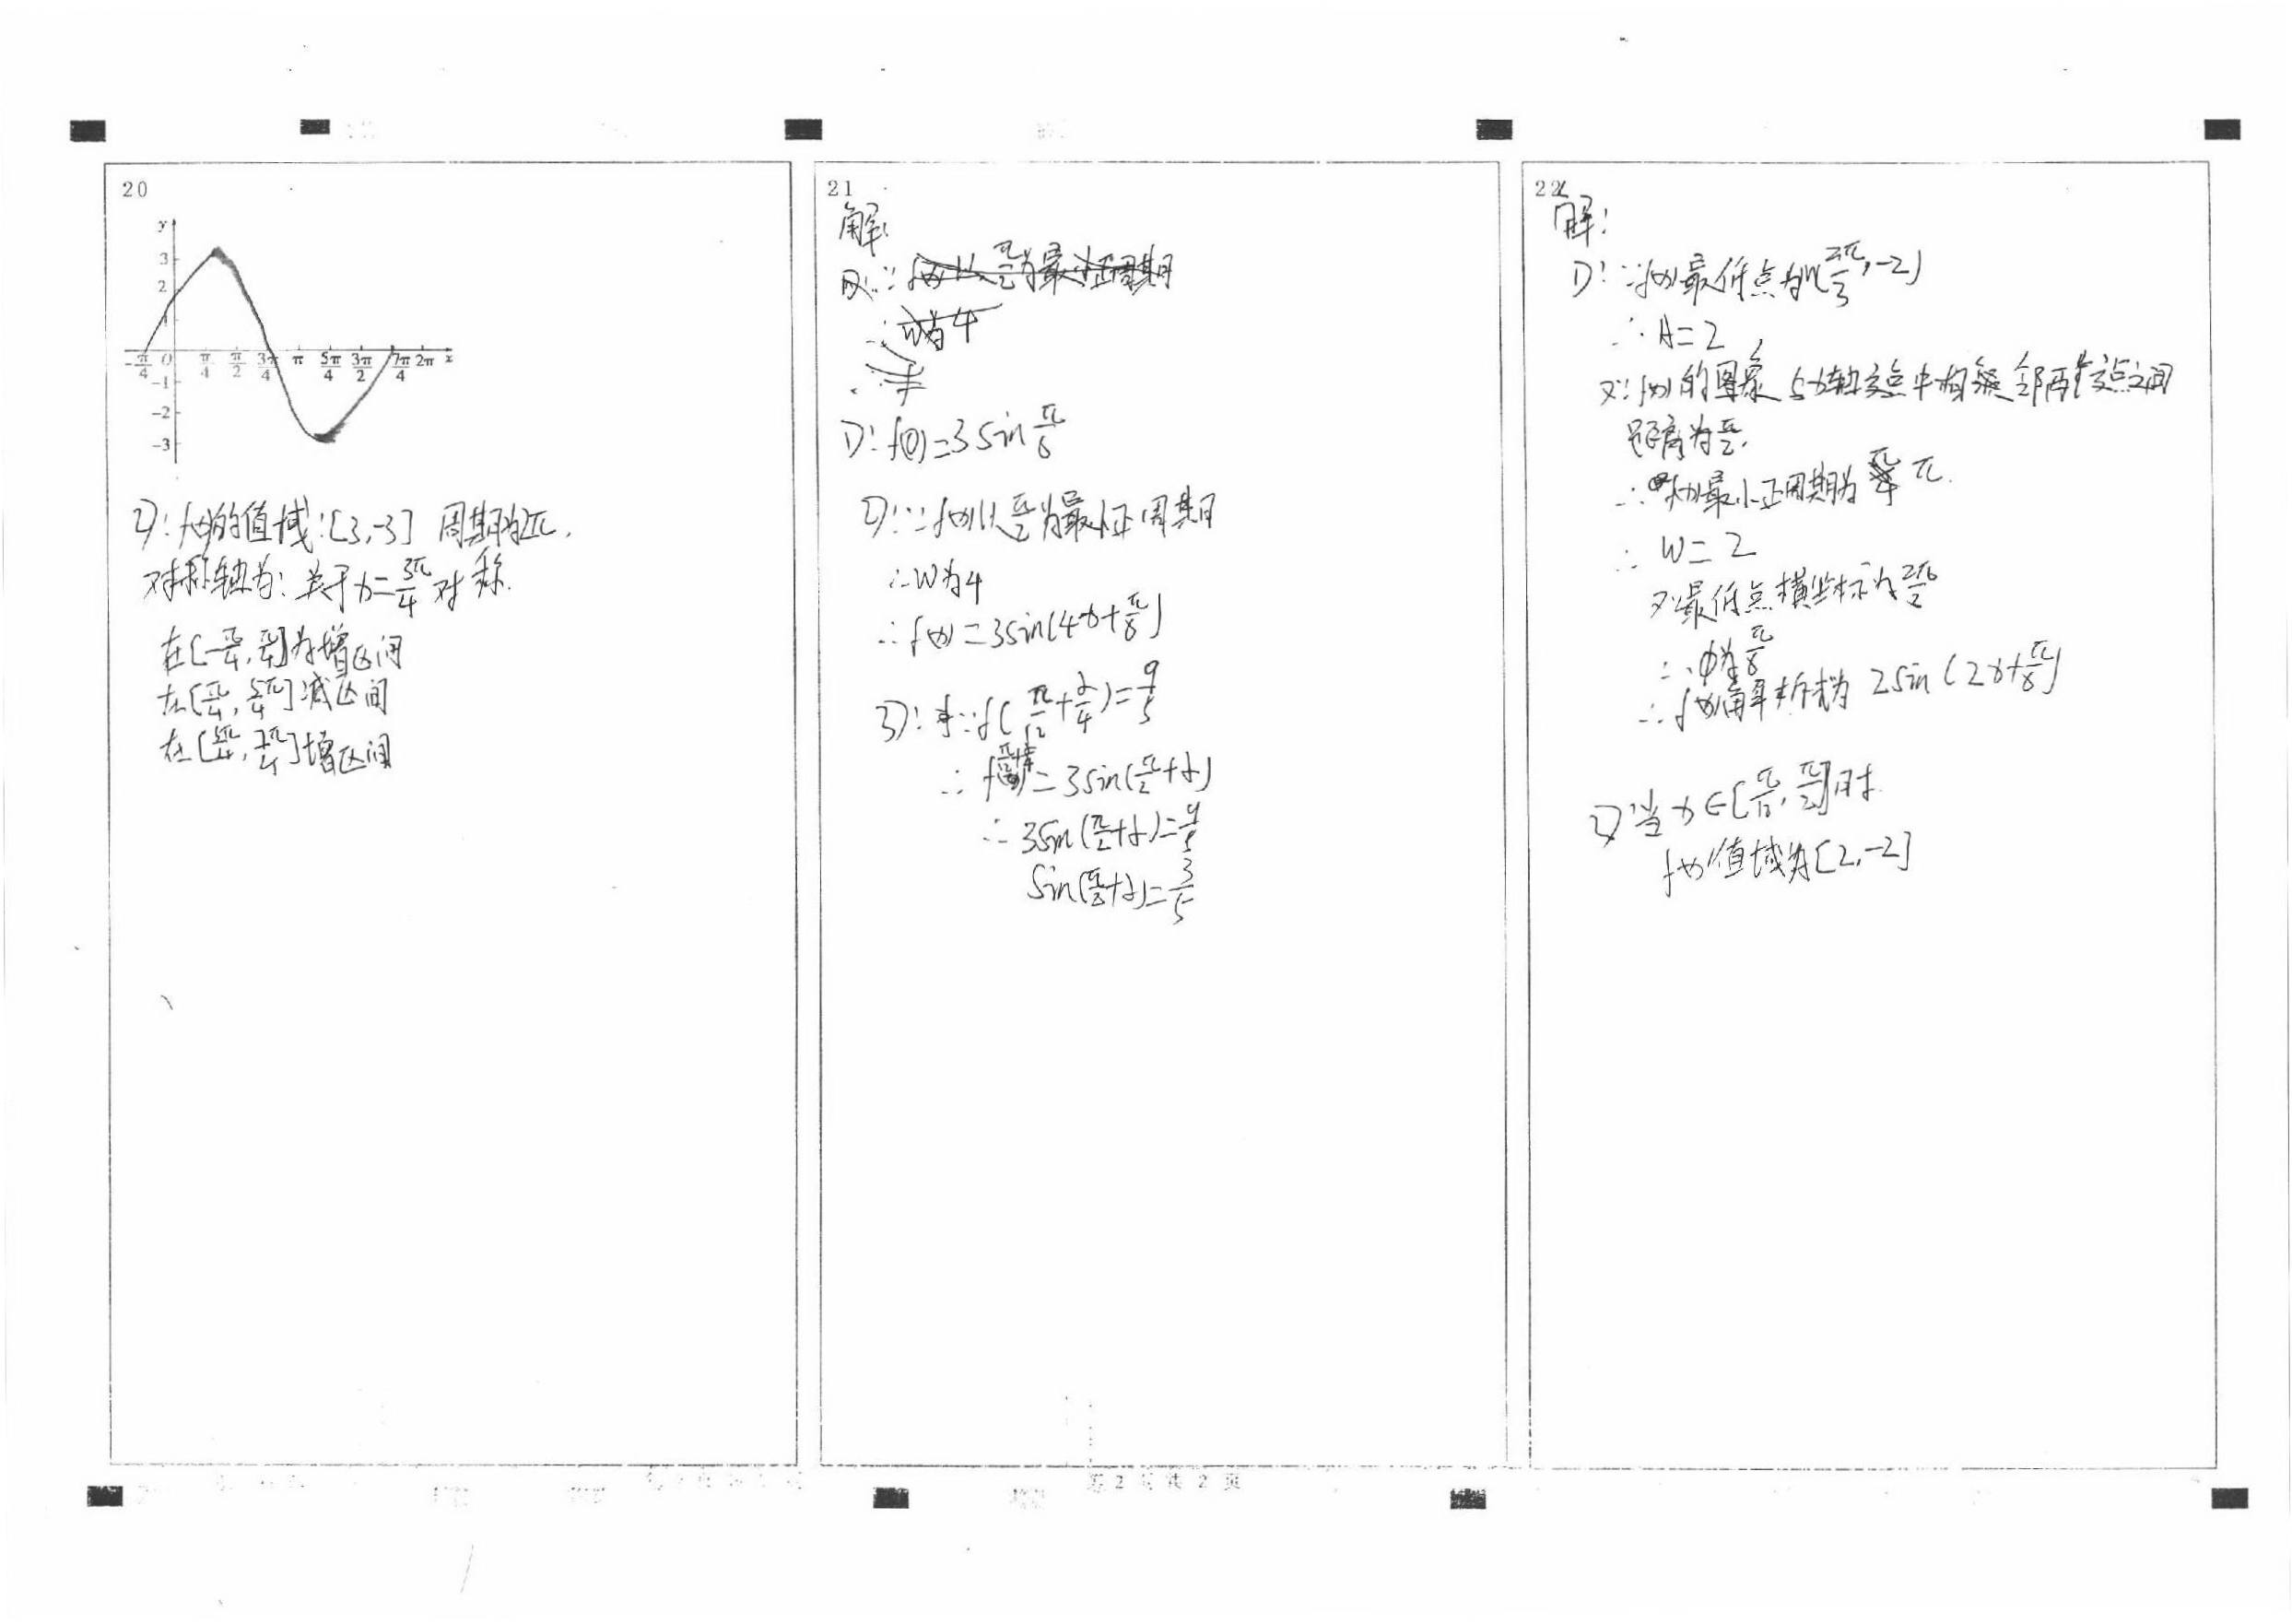 20
y
3
2
1
-π/4 0 π/4 π/2 3π/4 π 5π/4 3π/2 7π/4 2π x
-1
-2
-3
2): f(x)的值域:[3,-3] 周期为2π.
对称轴为: 关于x=3π/4对称.
在[-π/4,π/4]为增区间
在[π/4,5π/4]减区间
在[5π/4,7π/4]增区间
21
解:
1): f(0)=3sin π/6
2)∵f(x)以π/2为最小正周期
∴w为4
∴f(x)=3sin(4x+π/6)
3): ∵f(π/12+α/4)=9/5
=3sin(π/2+α)
∴3sin(π/2+α)=9/5
sin(π/2+α)=3/5
22
解:
1): ∵f(x)最低点为M(2π/3,-2)
∴A=2,
又∵f(x)的图象与x轴交点中相邻两个交点之间
距离为π/2.
∴f(x)最小正周期为π.
∴w=2
又∵最低点横坐标为
∴φ为π/6
∴f(x)解析式为2sin(2x+π/6)
2)当x∈[π/12,π/2]时.
f(x)值域为[2,-2]
第 2 页 共 2 页